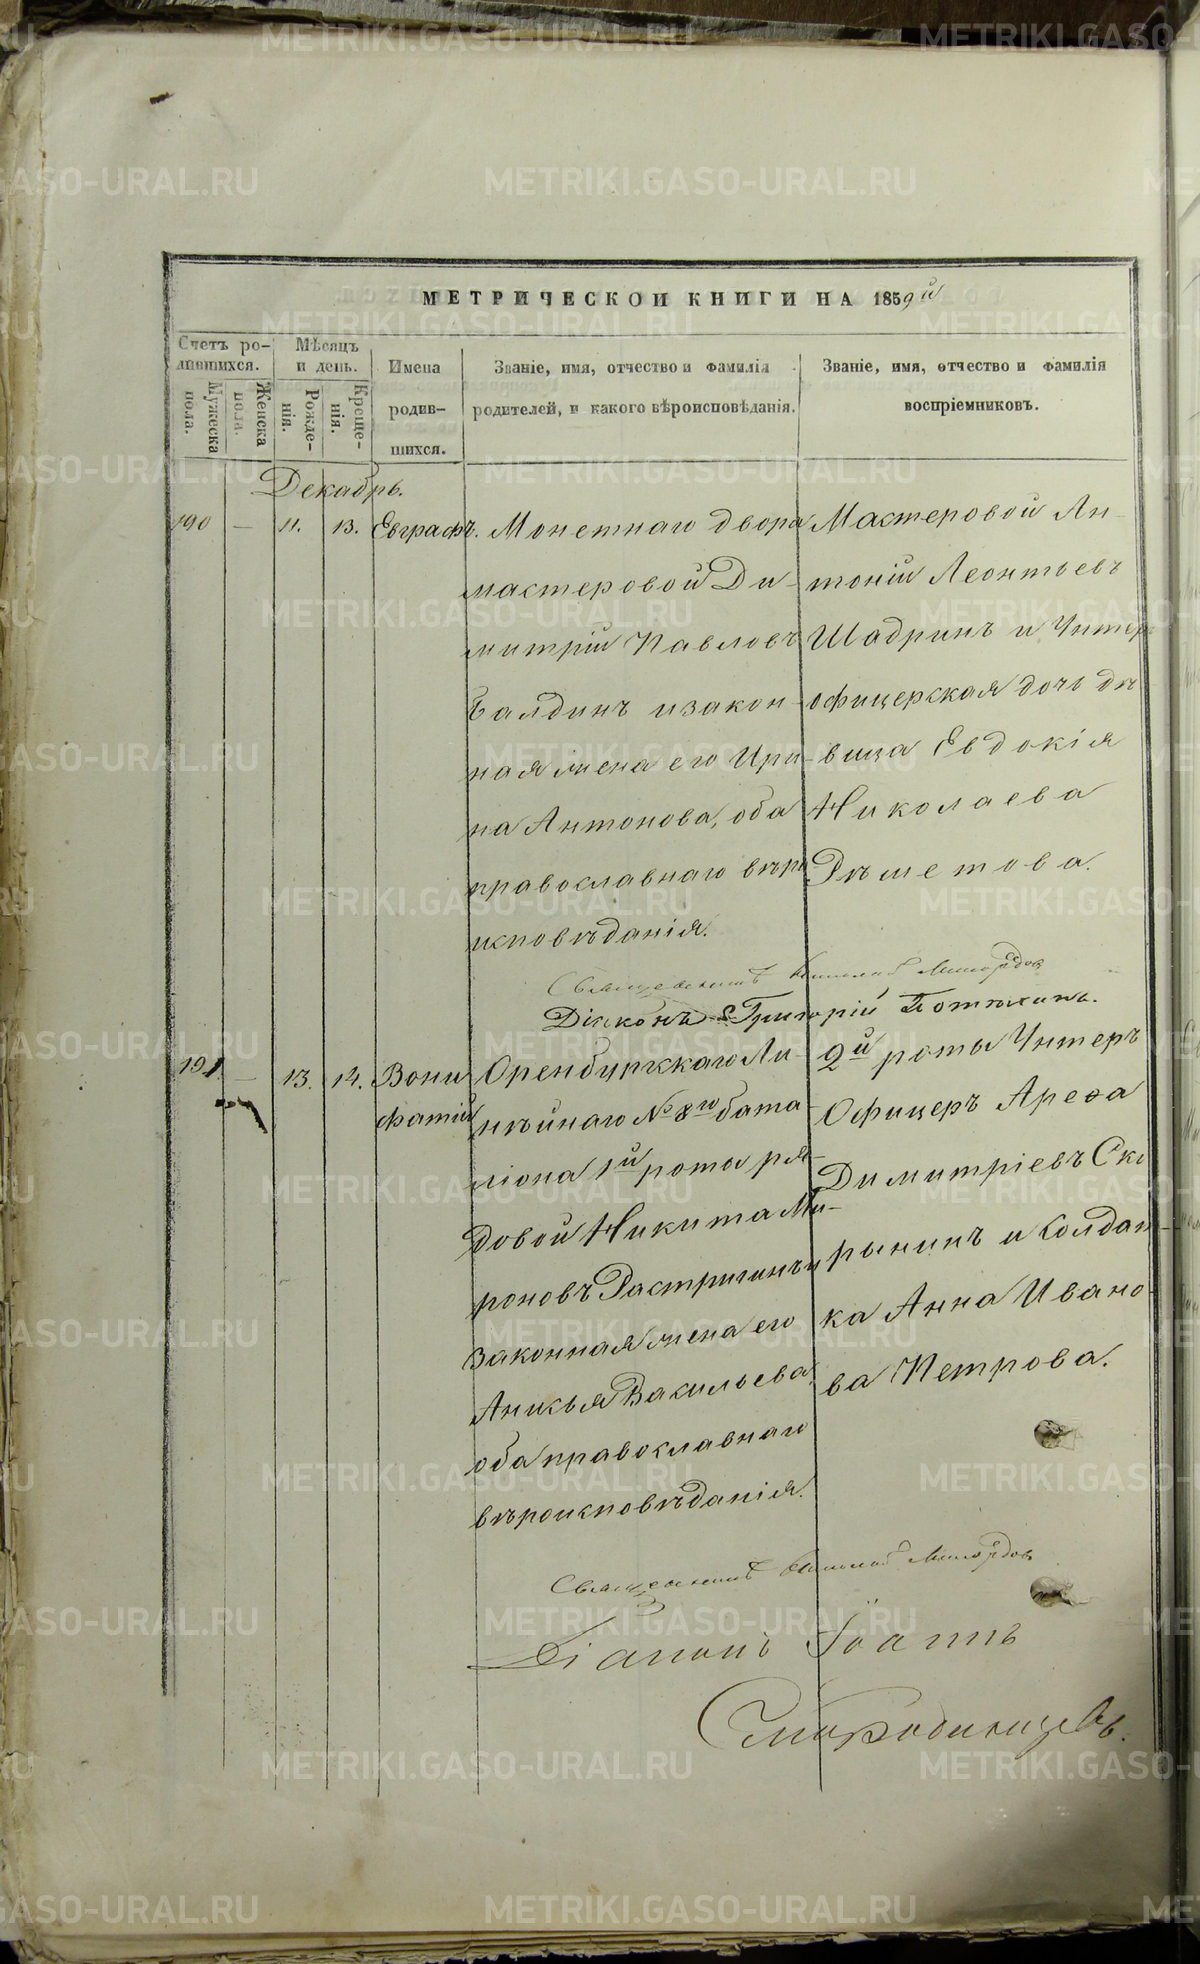 МЕТРИЧЕСКОЙ КНИГИ НА 1859й
Счетъ ро-
дившихся.
Мужеска
пола.
Женска
пола.
Мѣсяцъ
и день.
Рожде-
нія.
Креще-
нія.
Имена
родив-
шихся.
Званіе, имя, отчество и фамилія
родителей, и какого вѣроисповѣданія.
Званіе, имя, отчество и фамилія
воспріемниковъ.
Декабрь.
190 — 11. 13. Евграфъ.
Монетнаго двора
мастеровой Ди-
митрій Павловъ
Балдинъ и закон-
ная жена его Ири-
на Антонова, оба
православнаго вѣро
исповѣданія.
Мастеровой Ан-
тоній Леонтьевъ
Шадринъ и Унтеръ
офицерская дочь дѣ
вица Евдокія
Николаева
Рѣшетова.
Священникъ
Діаконъ Григорій Потѣхинъ.
191. — 13. 14. Вони
фатій
Оренбургскаго Ли-
нѣйнаго № 8го бата-
ліона 1й роты ря-
довой Никита Ми-
роновъ Растригинъ и
законная жена его
Анисья Васильева,
оба православнаго
вѣроисповѣданія.
2й роты Унтеръ
Офицеръ Ареѳа
Димитріевъ Ско
рынинъ и солдат-
ка Анна Ивано-
ва Петрова.
Священникъ
Діаконъ Іоаннъ
Смородинцевъ.
METRIKI.GASO-URAL.RU